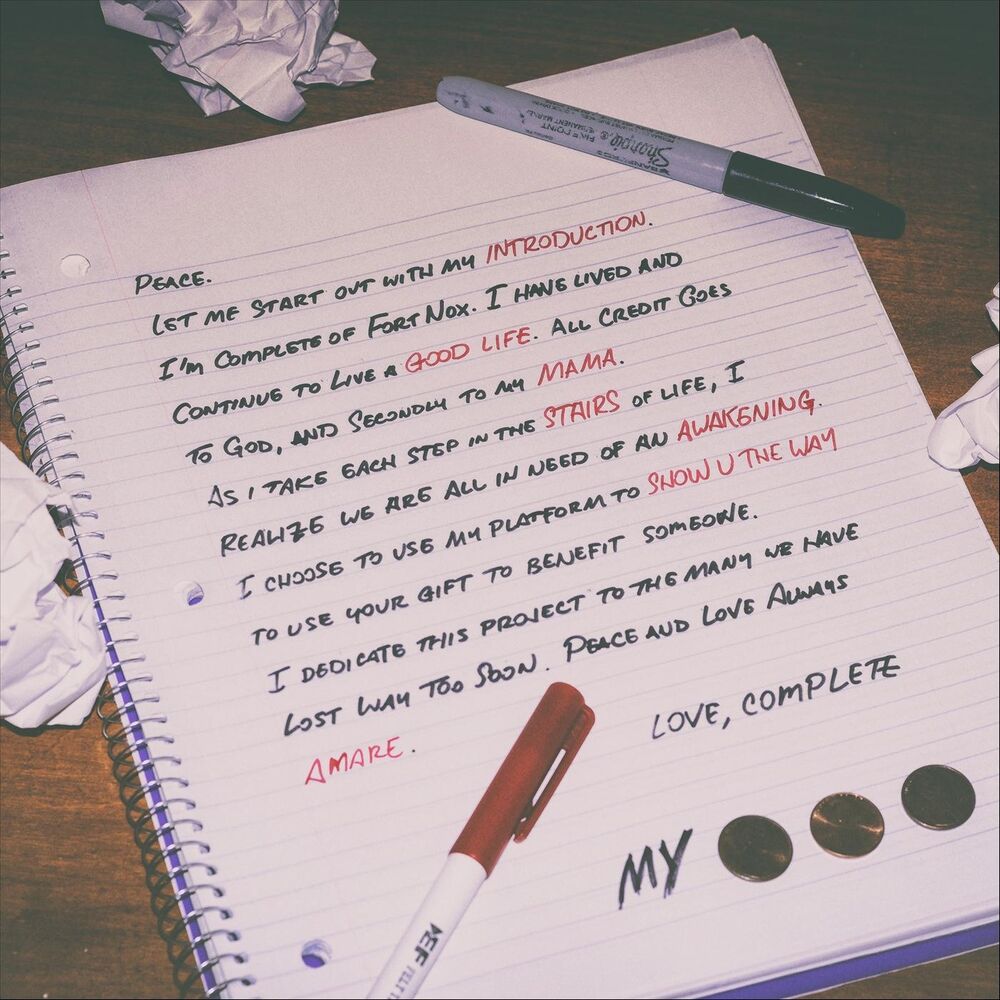 PEACE.
LET ME START OUT WITH MY INTRODUCTION.
I'M COMPLETE OF FORT NOX. I HAVE LIVED AND
CONTINUE TO LIVE A GOOD LIFE. ALL CREDIT GOES
TO GOD, AND SECONDLY TO MY MAMA.
AS I TAKE EACH STEP IN THE STAIRS OF LIFE, I
REALIZE WE ARE ALL IN NEED OF AN AWAKENING.
I CHOOSE TO USE MY PLATFORM TO SHOW U THE WAY
TO USE YOUR GIFT TO BENEFIT SOMEONE.
I DEDICATE THIS PROJECT TO THE MANY WE HAVE
LOST WAY TOO SOON. PEACE AND LOVE ALWAYS
AMARE.
LOVE, COMPLETE
MY
Sharpie
FINE POINT
PERMANENT MARKER